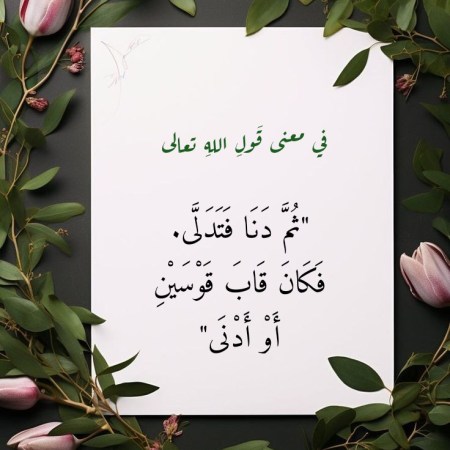 في معنى قَولِ اللهِ تعالى
"ثُمَّ دَنَا فَتَدَلَّى.
فَكَانَ قَابَ قَوْسَيْنِ
أَوْ أَدْنَى"